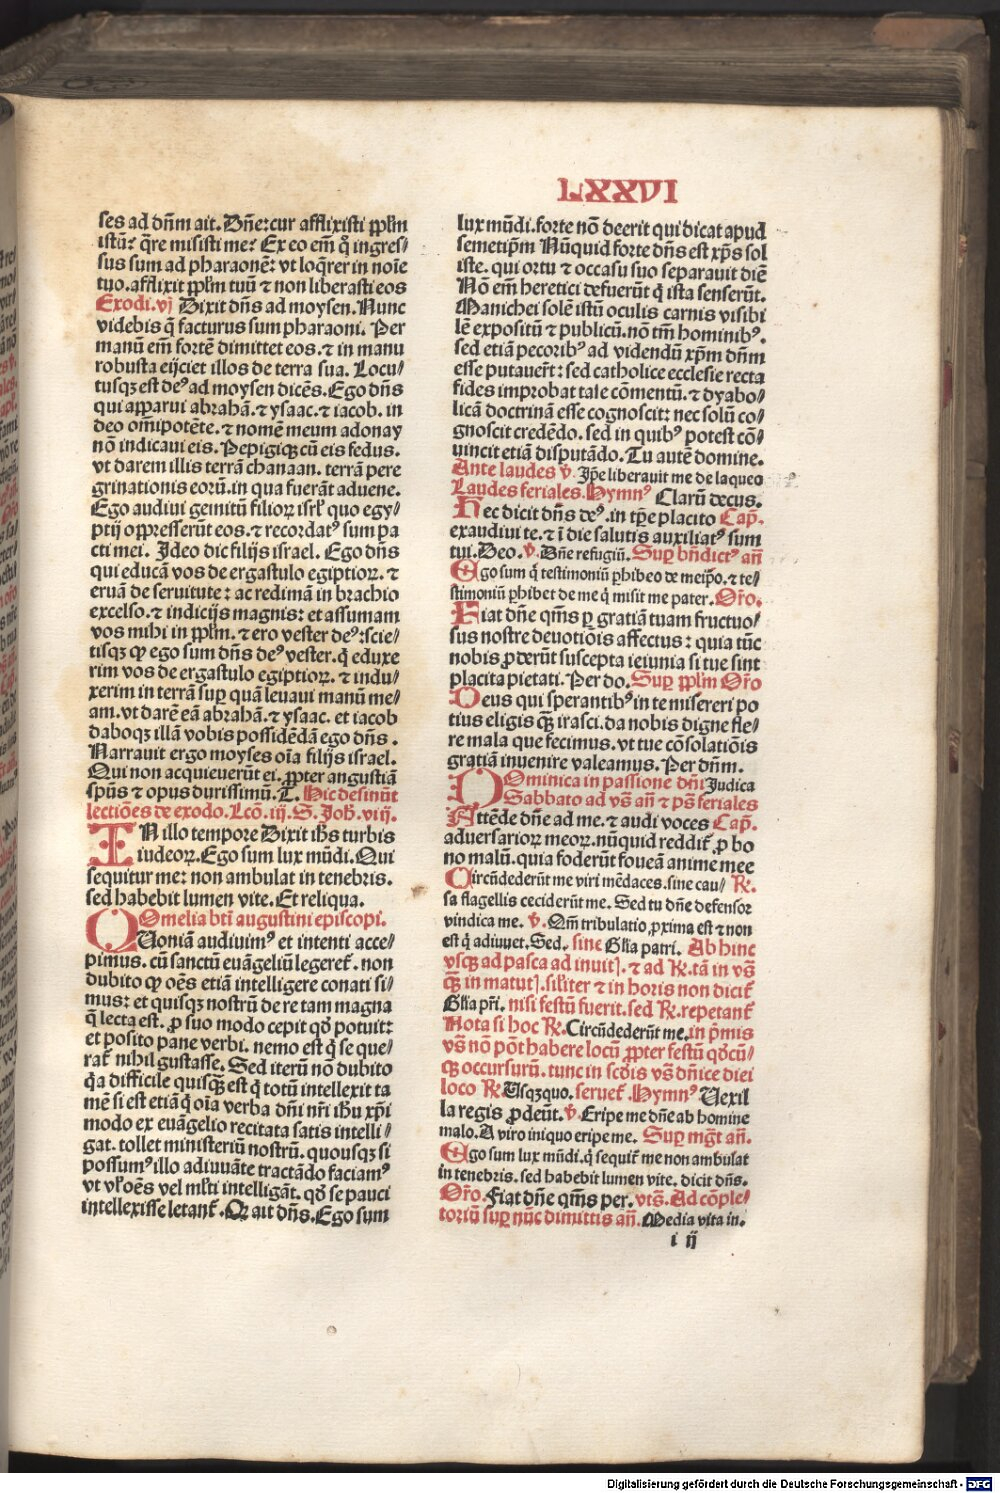 LXXVI
ses ad dn̄m ait. Dn̄e: cur afflixisti ppl̄m
istū: q̄re misisti me: Ex eo em̄ q̊ ingres/
sus sum ad pharaonē: vt loq̄rer in noīe
tuo. afflixit ppl̄m tuū ⁊ non liberasti eos
Exodi. vj Dixit dn̄s ad moysen. Nunc
videbis q̄ facturus sum pharaoni. Per
manū em̄ fortē dimittet eos. ⁊ in manu
robusta eijciet illos de terra sua. Locu/
tusqꝫ est deꝰ ad moysen dicēs. Ego dn̄s
qui apparui abrahā. ⁊ ysaac. ⁊ iacob. in
deo om̄ipotēte. ⁊ nomē meum adonay
nō indicaui eis. Pepigiqꝫ cū eis fedus.
vt darem illis terrā chanaan. terrā pere
grinationis eorū. in qua fuerāt aduene.
Ego audiui gemitū filioꝝ isrl̄ quo egy/
ptij oppresserūt eos. ⁊ recordatꝰ sum pa
cti mei. Ideo dic filijs israel. Ego dn̄s
qui educā vos de ergastulo egiptioꝝ. ⁊
eruā de seruitute: ac redimā in brachio
excelso. ⁊ indicijs magnis: et assumam
vos mihi in ppl̄m. ⁊ ero vester deꝰ: scie/
tisqꝫ ꝙ ego sum dn̄s deꝰ vester. q̄ eduxe
rim vos de ergastulo egiptioꝝ. ⁊ indu/
xerim in terrā suꝑ quā leuaui manū me/
am. vt darē eā abrahā. ⁊ ysaac. et iacob
daboqꝫ illā vobis possidēdā ego dn̄s.
Narrauit ergo moyses oīa filijs israel.
Qui non acquieuerūt ei. ꝓpter angustiā
spūs ⁊ opus durissimū. T. Hic desinūt
lectiōes de exodo. Lcō. iij. S. Joh̄. viij.
IN illo tempore Dixit ih̄s turbis
iudeoꝝ. Ego sum lux mūdi. Qui
sequitur me: non ambulat in tenebris.
sed habebit lumen vite. Et reliqua.
Omelia bt̄i augustini episcopi.
QVoniā audiuimꝰ et intenti acce/
pimus. cū sanctū euāgeliū legeret̄. non
dubito ꝙ oēs etiā intelligere conati si/
mus: et quisqꝫ nostrū de re tam magna
q̄ lecta est. ꝓ suo modo cepit qd̊ potuit:
et posito pane verbi. nemo est q̄ se que/
rat̄ nihil gustasse. Sed iterū nō dubito
q̄a difficile quisq̄ꝫ est q̄ totū intellexit ta
mē si est etiā q̄ oīa verba dn̄i nr̄i ih̄u xp̄i
modo ex euāgelio recitata satis intelli/
gat. tollet ministeriū nostrū. quousqꝫ si
possumꝰ illo adiuuāte tractādo faciamꝰ
vt vl̓ oēs vel ml̓ti intelligāt. qd̊ se pauci
intellexisse letant̄. Qꝛ ait dn̄s. Ego sum
lux mūdi. forte nō deerit qui dicat apud
semetip̄m Nūquid forte dn̄s est xp̄s sol
iste. qui ortu ⁊ occasu suo separauit diē
Nō em̄ heretici defuerūt q̄ ista senserūt.
Manichei solē istū oculis carnis visibi
lē expositū ⁊ publicū. nō tm̄ hominibꝰ.
sed etiā pecoribꝰ ad videndū xp̄m dn̄m
esse putauer̄t: sed catholice ecclesie recta
fides improbat tale cōmentū. ⁊ dyabo/
licā doctrinā esse cognoscit: nec solū co/
gnoscit credēdo. sed in quibꝰ potest cō/
uincit etiā disputādo. Tu autē domine.
Ante laudes ℣. Ip̄e liberauit me de laqueo
Laudes feriales. Hymnꝰ Clarū decus.
Hec dicit dn̄s deꝰ. in tp̄e placito Cap̄.
exaudiui te. ⁊ ī die salutis auxiliatꝰ sum
tui. Deo. ℣. Dn̄e refugiū. Suꝑ bn̄dictꝰ an̄
Ego sum q̄ testimoniū ꝑhibeo de meip̄o. ⁊ te/
stimoniū ꝑhibet de me q̄ misit me pater. Or̄o.
Fiat dn̄e qm̄s ꝑ gratiā tuam fructuo/
sus nostre deuotiōis affectus: quia tūc
nobis ꝓderūt suscepta ieiunia si tue sint
placita pietati. Per do. Suꝑ ppl̄m Or̄o
Deus qui sperantibꝰ in te misereri po
tius eligis q̄ꝫ irasci. da nobis digne fle/
re mala que fecimus. vt tue cōsolatiōis
gratiā inuenire valeamus. Per dn̄m.
DOminica in passione dn̄i Judica
Sabbato ad vs̄ an̄ ⁊ ps̄ feriales
Attēde dn̄e ad me. ⁊ audi voces Cap̄.
aduersarioꝝ meoꝝ. nūquid reddit̄ ꝓ bo
no malū. quia foderūt foueā anime mee
Circūdederūt me viri mēdaces. sine cau/ ℟.
sa flagellis ceciderūt me. Sed tu dn̄e defensor
vindica me. ℣. Qm̄ tribulatio ꝓxima est ⁊ non
est q̄ adiuuet. Sed. sine Gl̄ia patri. Ab hinc
vsqꝫ ad pasca ad inuit̄. ⁊ ad ℟. tā in vs̄
q̄ꝫ in matut̄. sil̓iter ⁊ in horis non dicit̄
Gl̄ia pr̄i. nisi festū fuerit. sed ℟. repetant̄
Nota si hoc ℟. Circūdederūt me. in p̄mis
vs̄ nō pōt habere locū ꝓpter festū qd̊cū/
q̄ꝫ occursurū. tunc in scd̓is vs̄ dn̄ice diei
loco ℟ Vsqꝫquo. seruet̄. Hymnꝰ Vexil
la regis ꝓdeūt. ℣. Eripe me dn̄e ab homine
malo. A viro iniquo eripe me. Suꝑ mg̅t an̄.
Ego sum lux mūdi. q̄ sequit̄ me non ambulat
in tenebris. sed habebit lumen vite. dicit dn̄s.
Or̄o. Fiat dn̄e qm̄s per. vts̄. Ad cōple/
toriū suꝑ nūc dimittis an̄. Media vita in.
i ij
Digitalisierung gefördert durch die Deutsche Forschungsgemeinschaft - DFG